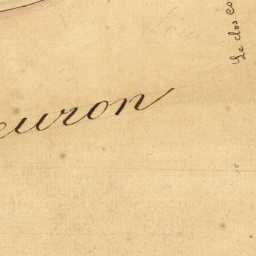 euron
Le clos co